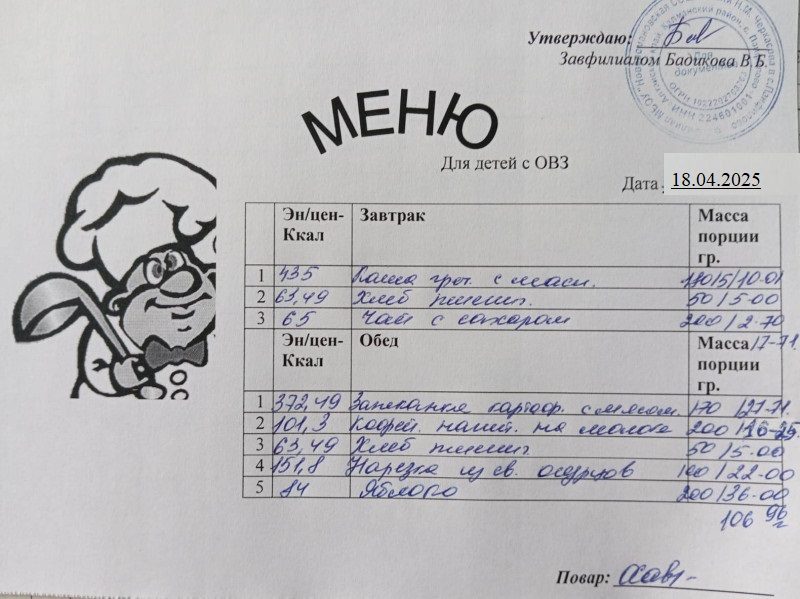 Утверждаю:
Завфилиалом Бадикова В.Б.
Для документов
ОГРН 1022202703762
ИНН 224801001
МЕНЮ
Для детей с ОВЗ
Дата 18.04.2025
Эн/цен-Ккал Завтрак Масса порции гр.
1 435 Каша греч. с масл. /5/10-01
2 63,49 Хлеб пшенич. 50/5-00
3 65 Чай с сахаром 200/2-70
17-71
Эн/цен-Ккал Обед Масса порции гр.
1 372,49 Запеканка картоф. с мясом. 170/27-71
2 101,3 Кофейн. напит. на молоке 200/16-25
3 63,49 Хлеб пшенич. 50/5-00
4 151,8 Нарезка из св. огурцов 100/22-00
5 84 Яблоко 200/36-00
106 96
Повар: